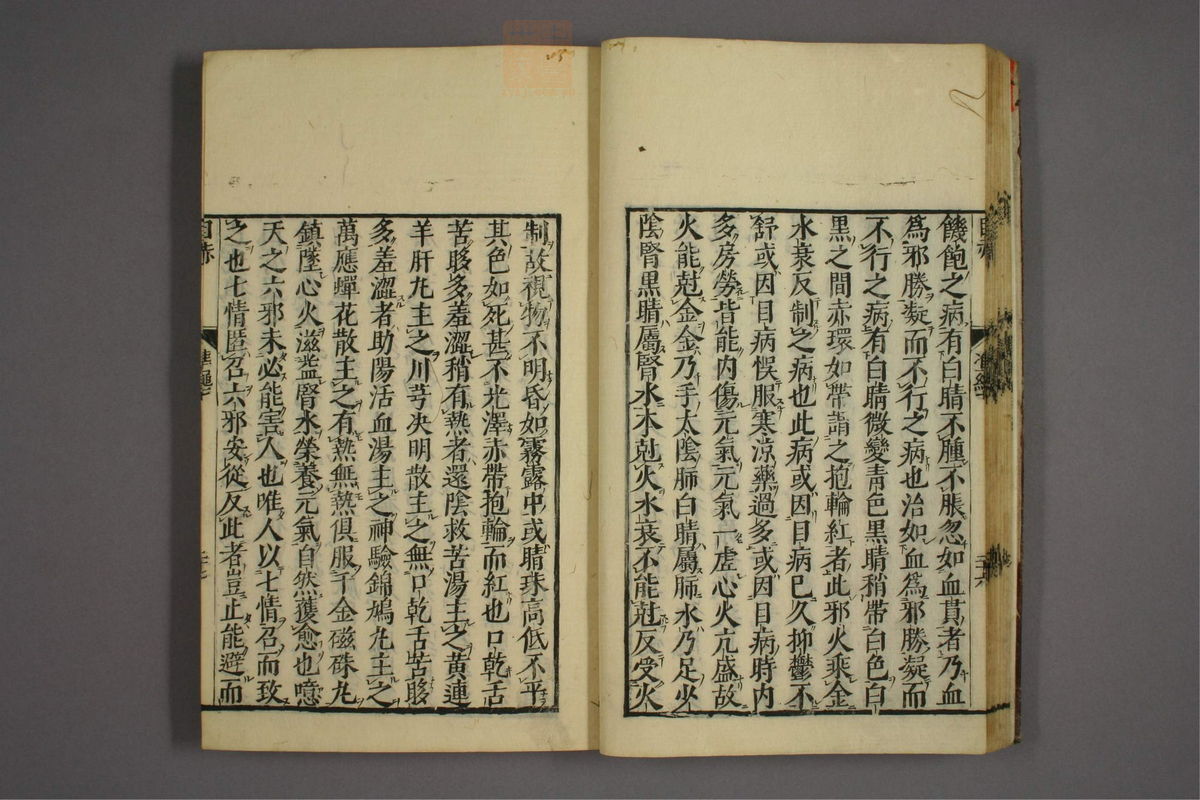 饑飽之病有白睛不腫不脹忽如血貫者乃血
爲邪勝凝而不行之病也治如血爲邪勝凝而
不行之病有白睛微變青色黑睛稍帶白色白
黒之間赤環如帶謂之抱輪紅者此邪火乘金
水衰反制之病也此病或因目病已久抑鬱不
舒或因目病悮服寒涼藥過多或因目病時内
多房勞皆能内傷元氣元氣一虚心火亢盛故
火能尅金金乃手太陰肺白睛屬肺水乃足少
陰腎黒睛屬腎水本尅火水衰不能尅反受火
目赤
三十六
制故視物不明昏如霧露中或睛珠高低不平
其色如死甚不光澤赤帶抱輪而紅也口乾舌
苦眵多羞澀稍有熱者還陰救苦湯主之黄連
羊肝丸主之川芎决明散主之無口乾舌苦眵
多羞澀者助陽活血湯主之神驗錦鳩丸主之
萬應蟬花散主之有熱無熱俱服千金磁硃丸
鎮墜心火滋益腎水榮養元氣自然獲愈也噫
天之六邪未必能害人也唯人以七情召而致
之也七情匿召六邪安從反此者豈止能避而
目赤
準繩七